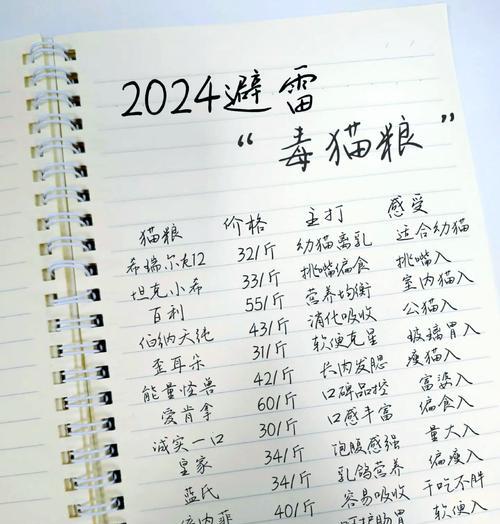 2024避雷
“毒猫粮”
猫粮 价格 主打 感受
希瑞尔克12 32/斤 幼猫离乳 适合幼猫
坦克小希 33/斤 挑嘴偏食 挑嘴入
百利 55/斤 营养均衡 室内猫入
伯纳天纯 43/斤 消化吸收 公猫入
歪耳朵 31/斤 软便克星 玻璃胃入
能量怪兽 42/斤 长肉发腮 瘦猫入
爱肯拿 60/斤 口碑品控 富婆入
诚实一口 30/斤 口感丰富 偏食入
皇家 34/斤 饱腹感强 量大入
蓝氏 34/斤 乳鸽营养 偏瘦入
40/斤 容易吸收 干吃不胖
软便入